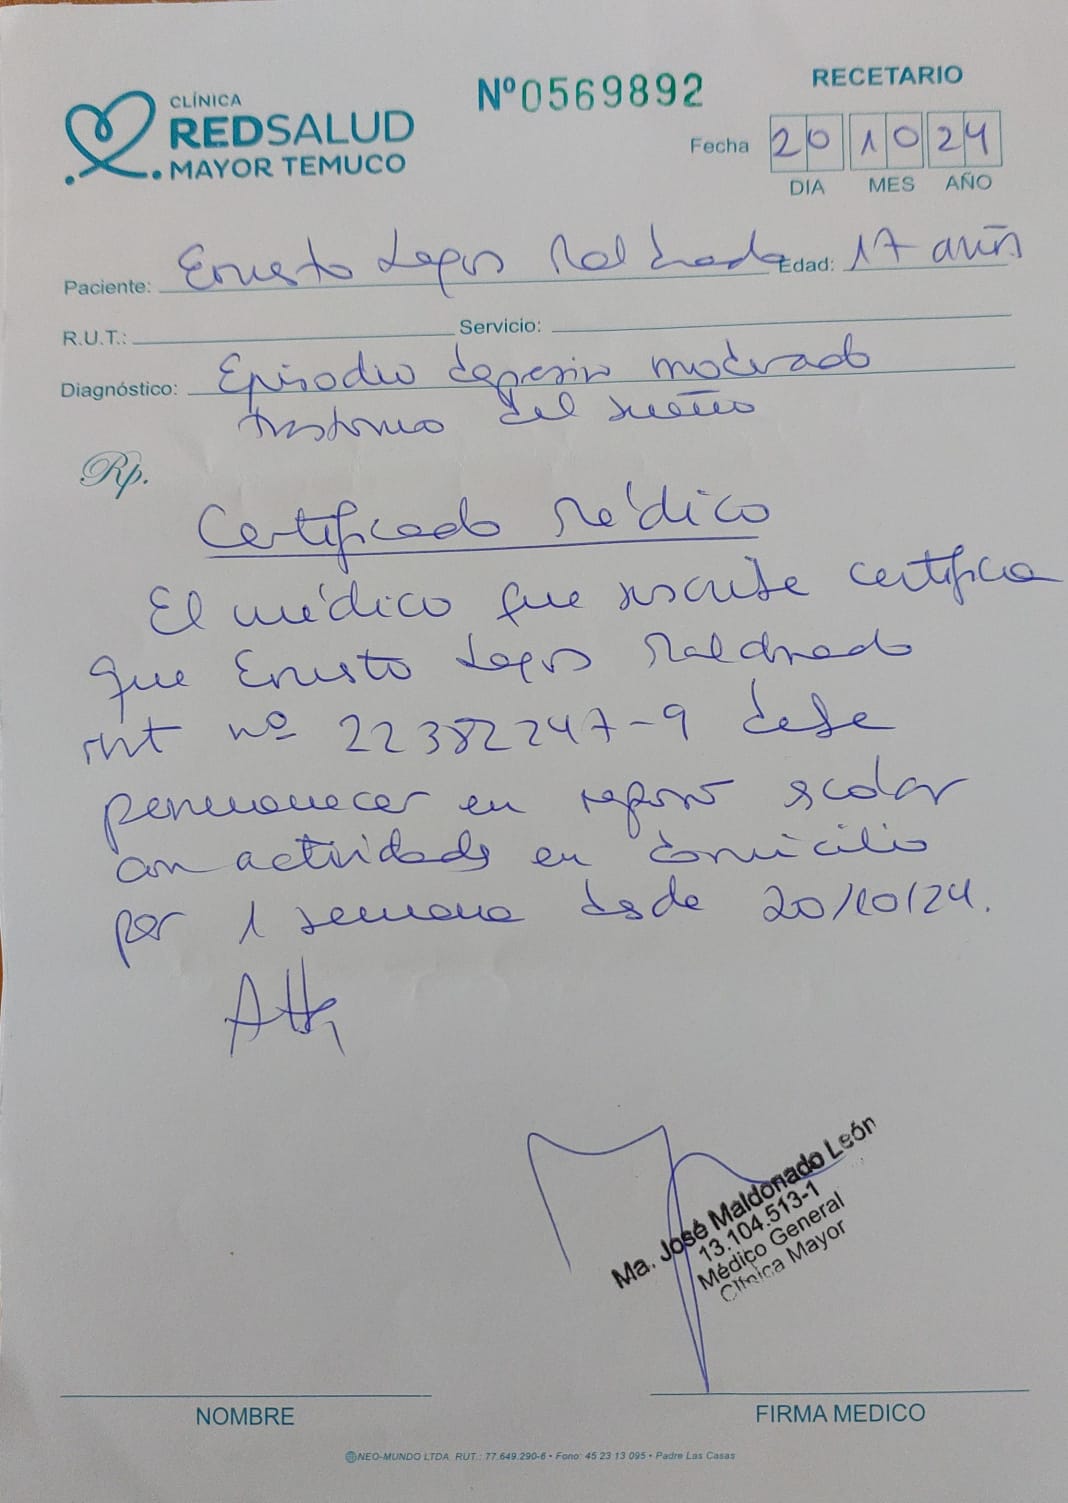 CLÍNICA
REDSALUD
MAYOR TEMUCO
Nº0569892
RECETARIO
Fecha 20 10 24
DIA MES AÑO
Paciente: Ernesto Lagos Maldonado Edad: 17 años
R.U.T.: Servicio:
Diagnóstico: Episodio depresivo moderado
trastorno del sueño
Rp.
Certificado Médico
El médico que suscribe certifica
que Ernesto Lagos Maldonado
rut nº 22382247-9 debe
permanecer en reposo escolar
con actividades en domicilio
por 1 semana desde 20/10/24.
Ma. José Maldonado León
13.104.513-1
Médico General
Clínica Mayor
NOMBRE
FIRMA MEDICO
NEO-MUNDO LTDA. RUT.: 77.649.290-6 • Fono: 45 23 13 095 • Padre Las Casas